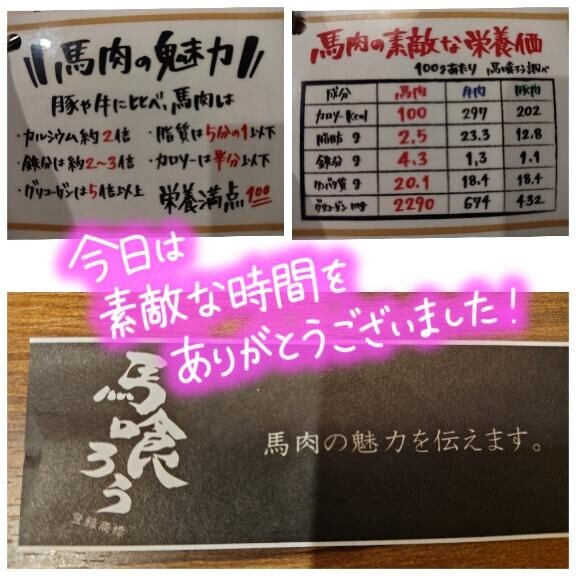 馬肉の魅力
豚や牛に比べ、馬肉は
・カルシウム約2倍
・鉄分は約2~3倍
・グリコーゲンは5倍以上
・脂質は5分の1以下
・カロリーは半分以下
栄養満点100
馬肉の素敵な栄養価
100gあたり 馬喰ろう調べ
成分 馬肉 牛肉 豚肉
カロリーkcal 100 297 202
脂肪 g 2.5 23.3 12.8
鉄分 g 4.3 1.3 1.1
タンパク質 g 20.1 18.4 18.4
グリコーゲン mg 2290 674 432
今日は
素敵な時間を
ありがとうございました!
馬喰ろう
登録商標
馬肉の魅力を伝えます。